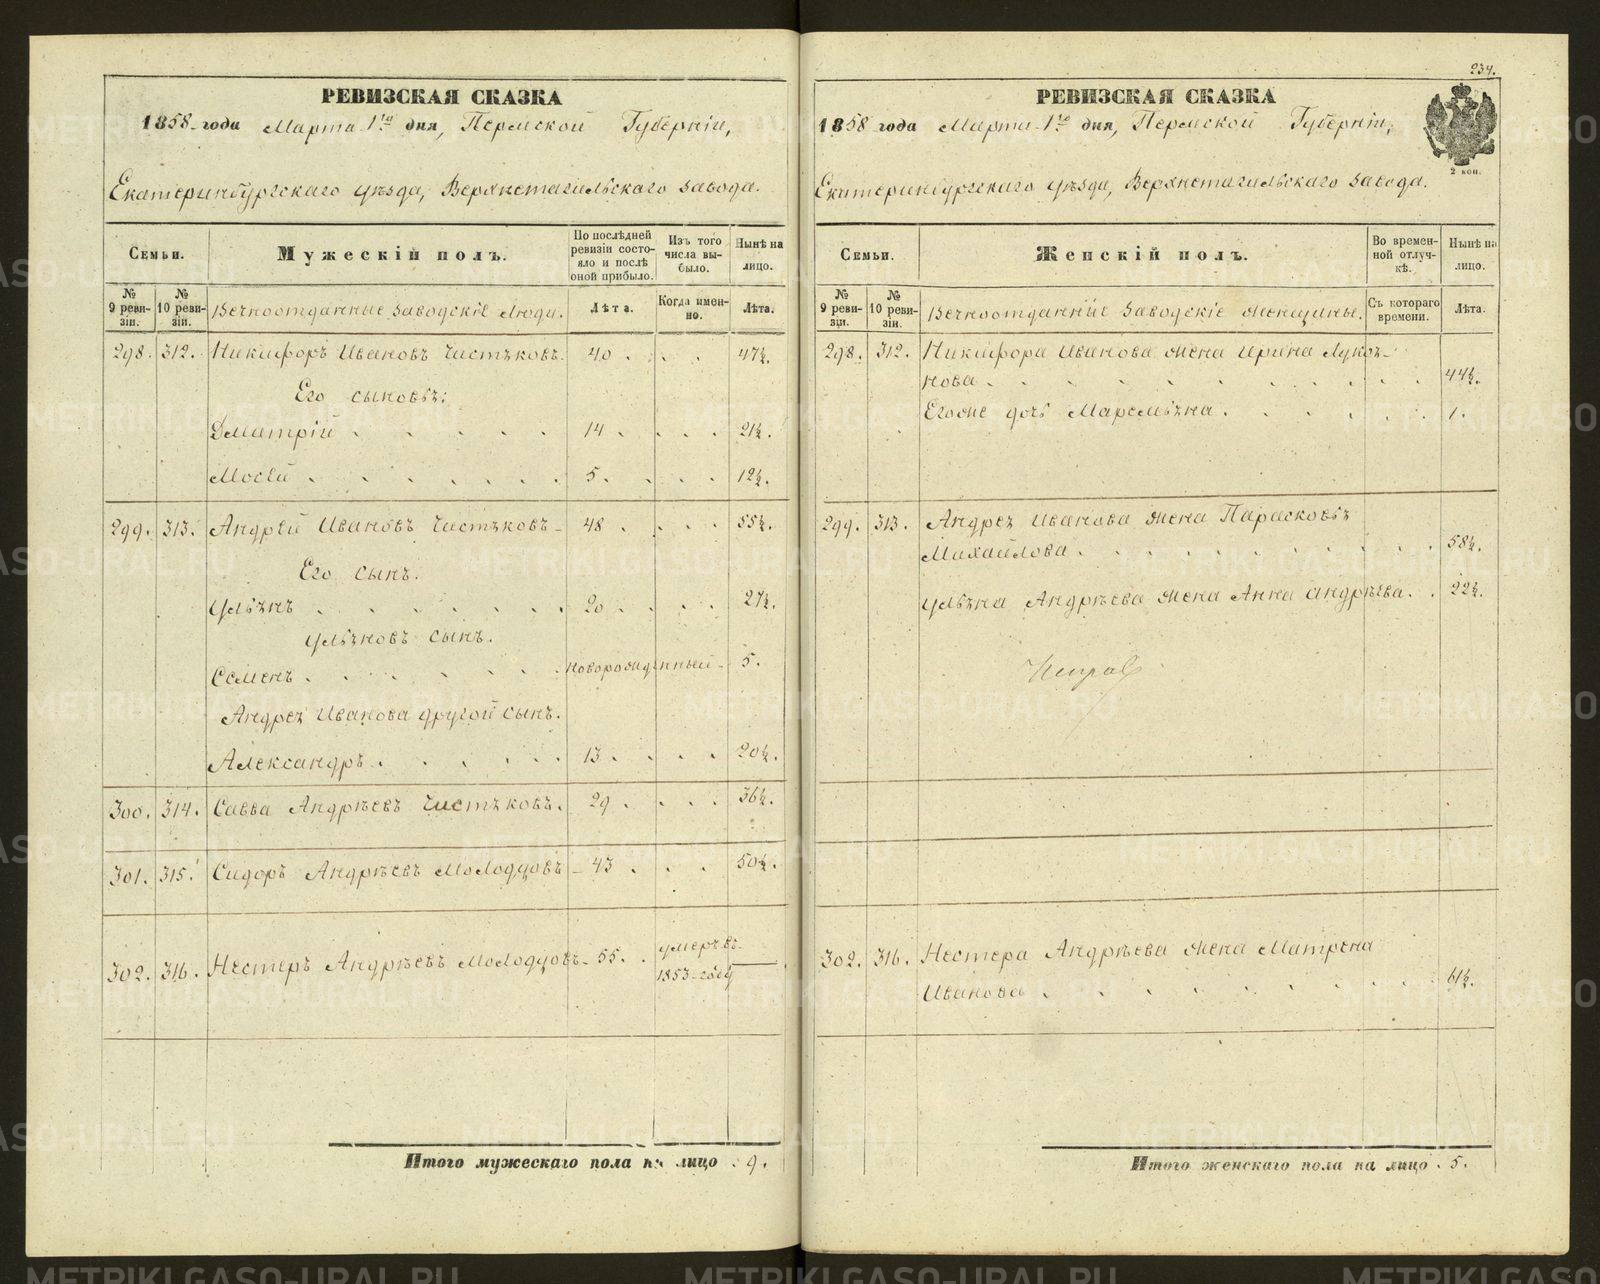 РЕВИЗСКАЯ СКАЗКА
1858 года Марта 1го дня, Пермской Губерніи,
Екатеринбургскаго уѣзда, Верхнетагильскаго завода.
Семьи.
Мужескій полъ.
По послѣдней ревизіи состояло и послѣ оной прибыло.
Изъ того числа выбыло.
Нынѣ на лицо.
№ 9 ревизіи.
№ 10 ревизіи.
Вечноотданные заводскіе люди.
Лѣта.
Когда именно.
Лѣта.
298. 312. Никифоръ Ивановъ Чистяковъ. 40 . . . 47½.
Его сыновья:
Дмитрій . . . . . 14 . . . . 21½.
Мосей . . . . . . . 5. . . . 12½.
299. 313. Андрей Ивановъ Чистяковъ 48 . . . 55½.
Его сынъ.
Ульянъ . . . . . . . 20 . . . . 27½.
Ульяновъ сынъ.
Семенъ . . . . . . новорожденный 5.
Андрея Иванова другой сынъ.
Александръ . . . . . . 13 . . . . 20½.
300. 314. Савва Андрѣевъ Чистяковъ. 29 . . . . 36½.
301. 315. Сидоръ Андрѣевъ Молодцовъ 43 . . . 50½.
302. 316. Нестеръ Андрѣевъ Молодцовъ 55. . умеръ въ 1853 году —
Итого мужескаго пола на лицо . 9.
234.
РЕВИЗСКАЯ СКАЗКА
1858 года Марта 1го дня, Пермской Губерніи,
2 коп.
Екатеринбургскаго уѣзда, Верхнетагильскаго завода.
Семьи.
Женскій полъ.
Во временной отлучкѣ.
Нынѣ на лицо.
№ 9 ревизіи.
№ 10 ревизіи.
Вечноотданныя заводскіе женщины.
Съ котораго времени.
Лѣта.
298. 312. Никифора Иванова жена Ирина Лукоянова . . . . . . . . . 44½.
Егоже дочь Маремьяна . . . . . . 1.
299. 313. Андрея Иванова жена Парасковья
Михайлова . . . . . . . . . . 58½.
Ульяна Андрѣева жена Анна Андрѣева . . 22½.
302. 316. Нестера Андрѣева жена Матрена
Иванова . . . . . . . . . 61½.
Итого женскаго пола на лицо . 5.
METRIKI.GASO-URAL.RU